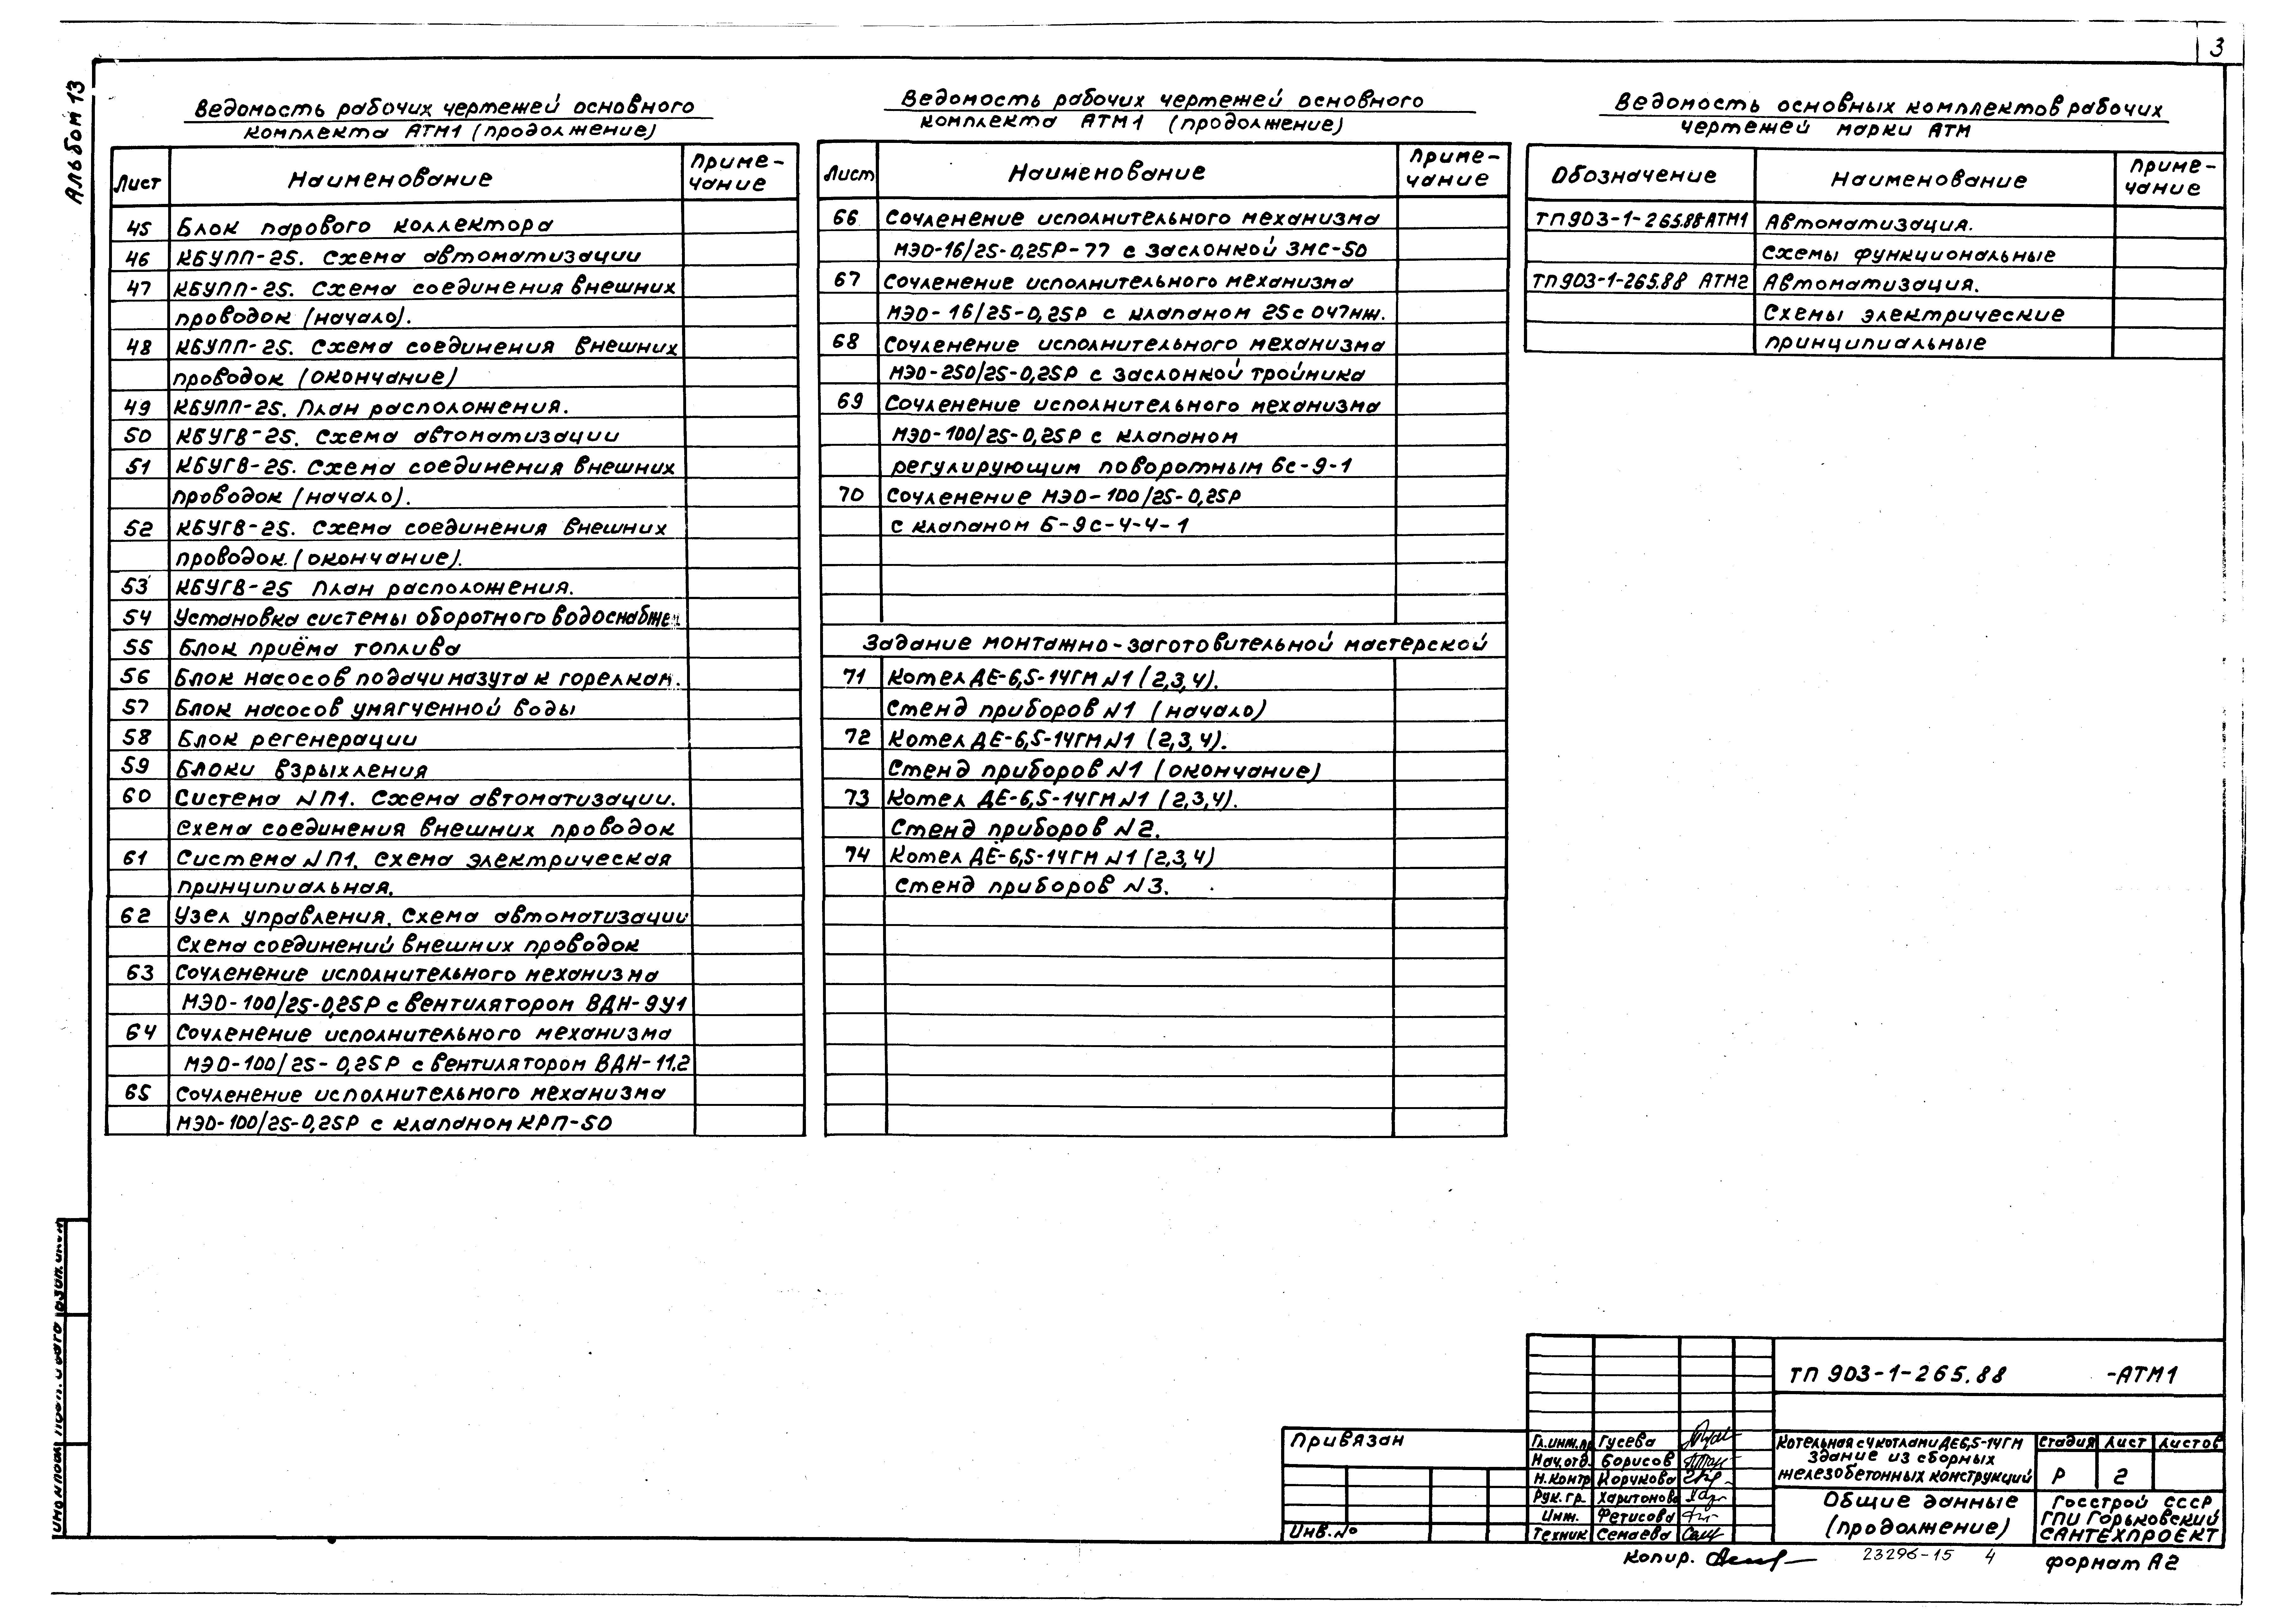 3
Альбом 13
Ведомость рабочих чертежей основного
комплекта АТМ1 (продолжение)
Лист Наименование Приме-
чание
45 Блок парового коллектора
46 КБУПП-25. Схема автоматизации
47 КБУПП-25. Схема соединения внешних
проводок (начало).
48 КБУПП-25. Схема соединения внешних
проводок (окончание)
49 КБУПП-25. План расположения.
50 КБУГВ-25. Схема автоматизации
51 КБУГВ-25. Схема соединения внешних
проводок (начало).
52 КБУГВ-25. Схема соединения внешних
проводок. (окончание).
53 КБУГВ-25 План расположения.
54 Установка системы оборотного водоснабже
55 Блок приёма топлива
56 Блок насосов подачи мазута к горелкам.
57 Блок насосов умягченной воды
58 Блок регенерации
59 Блоки взрыхления
60 Система №П1. Схема автоматизации.
Схема соединения внешних проводок
61 Система №П1. Схема электрическая
принципиальная.
62 Узел управления. Схема автоматизации
Схема соединений внешних проводок
63 Сочленение исполнительного механизма
МЭО-100/25-0,25Р с вентилятором ВДН-9У1
64 Сочленение исполнительного механизма
МЭО-100/25-0,25Р с вентилятором ВДН-11.2
65 Сочленение исполнительного механизма
МЭО-100/25-0,25Р с клапаном КРП-50
Ведомость рабочих чертежей основного
комплекта АТМ1 (продолжение)
Лист Наименование Приме-
чание
66 Сочленение исполнительного механизма
МЭО-16/25-0,25Р-77 с заслонкой ЗМС-50
67 Сочленение исполнительного механизма
МЭО-16/25-0,25Р с клапаном 25с047нж.
68 Сочленение исполнительного механизма
МЭО-250/25-0,25Р с заслонкой тройника
69 Сочленение исполнительного механизма
МЭО-100/25-0,25Р с клапаном
регулирующим поворотным 6с-9-1
70 Сочленение МЭО-100/25-0,25Р
с клапаном Б-9с-4-4-1
Задание монтажно-заготовительной мастерской
71 Котел ДЕ-6,5-14ГМ №1 (2,3,4).
Стенд приборов №1 (начало)
72 Котел ДЕ-6,5-14ГМ №1 (2,3,4).
Стенд приборов №1 (окончание)
73 Котел ДЕ-6,5-14ГМ №1 (2,3,4).
Стенд приборов №2.
74 Котел ДЕ-6,5-14ГМ №1 (2,3,4)
Стенд приборов №3.
Ведомость основных комплектов рабочих
чертежей марки АТМ
Обозначение Наименование Приме-
чание
ТП 903-1-265.88 АТМ1 Автоматизация.
Схемы функциональные
ТП 903-1-265.88 АТМ2 Автоматизация.
Схемы электрические
принципиальные
ТП 903-1-265.88 -АТМ1
Привязан
Инв. №
Гл.инж.пр Гусева
Нач.отд. Борисов
Н.контр Корчкова
Рук.гр. Харитонова
Инж. Фетисова
Техник Семаева
Котельная с 4 котлами ДЕ6,5-14ГМ
Здание из сборных
железобетонных конструкций
Стадия Лист Листов
Р 2
Общие данные
(продолжение)
Госстрой СССР,
ГПИ Горьковский
САНТЕХПРОЕКТ
Копир.
23296-15 4
формат А2